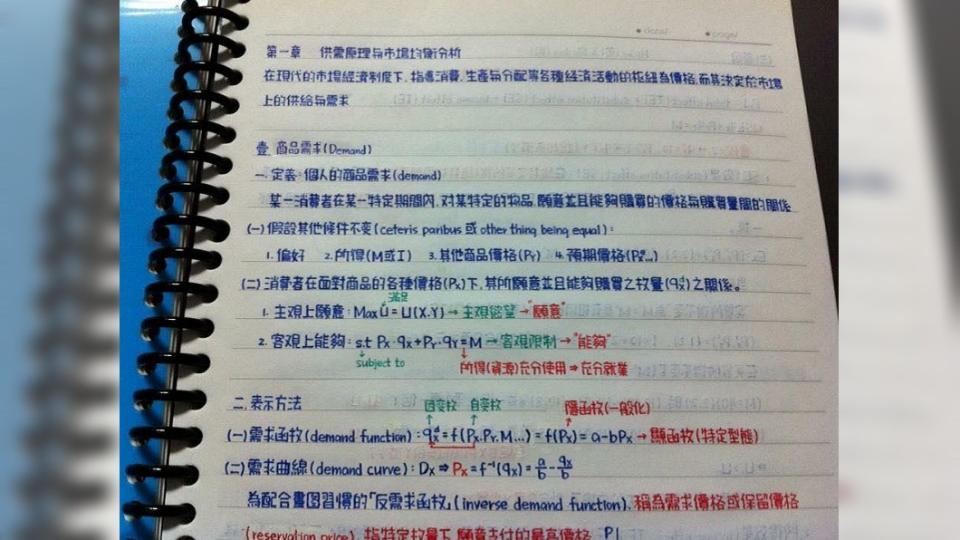 date/ page/
第一章 供需原理与市場均衡分析
在現代的市場經濟制度下,指導消費、生產与分配等各種經濟活動的樞紐為價格,而其決定於市場
上的供給与需求
壹. 商品需求(Demand)
一. 定義:個人的商品需求(demand)
某一消費者在某一特定期間內,对某特定的物品,願意並且能夠購買的價格与購買量間的關係
(一)假設其他條件不变(ceteris paribus 或 other thing being equal):
1. 偏好 2. 所得(M或I) 3. 其他商品價格(Py) 4. 預期價格
(二)消費者在面對商品的各種價格(Px)下,其所願意並且能夠購買之权量(qx)之關係。
滿足
1. 主观上願意: Max U = U(X.Y)→主观慾望→"願意"
2. 客观上能夠: s.t Px·qx+Py·qy=M→客观限制→"能夠"
subject to 所得(資源)充分使用⇒充分就業
二. 表示方法
因变数 自变数 隱函数(一般化)
(一)需求函数(demand function): qxd=f(Px.Py.M...)=f(Px)=a-bPx→顯函数(特定型態)
(二)需求曲線(demand curve): Dx⇒Px=f⁻¹(qx)=a/b-qx/b
為配合畫図習慣的「反需求函数」(inverse demand function),稱為需求價格或保留價格
(reservation price),指特定数量下,願意支付的最高價格 P|